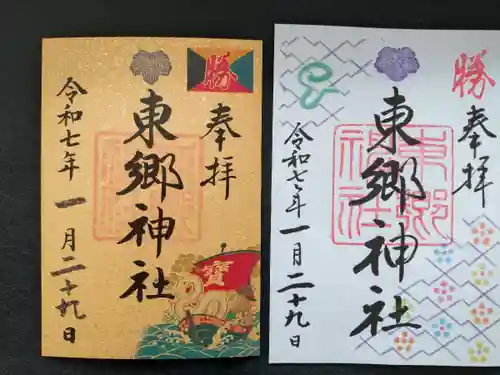 勝
奉拝
東郷神社
令和七年一月二十九日
寶
勝
奉拝
東郷神社
東郷
神社
令和七年一月二十九日